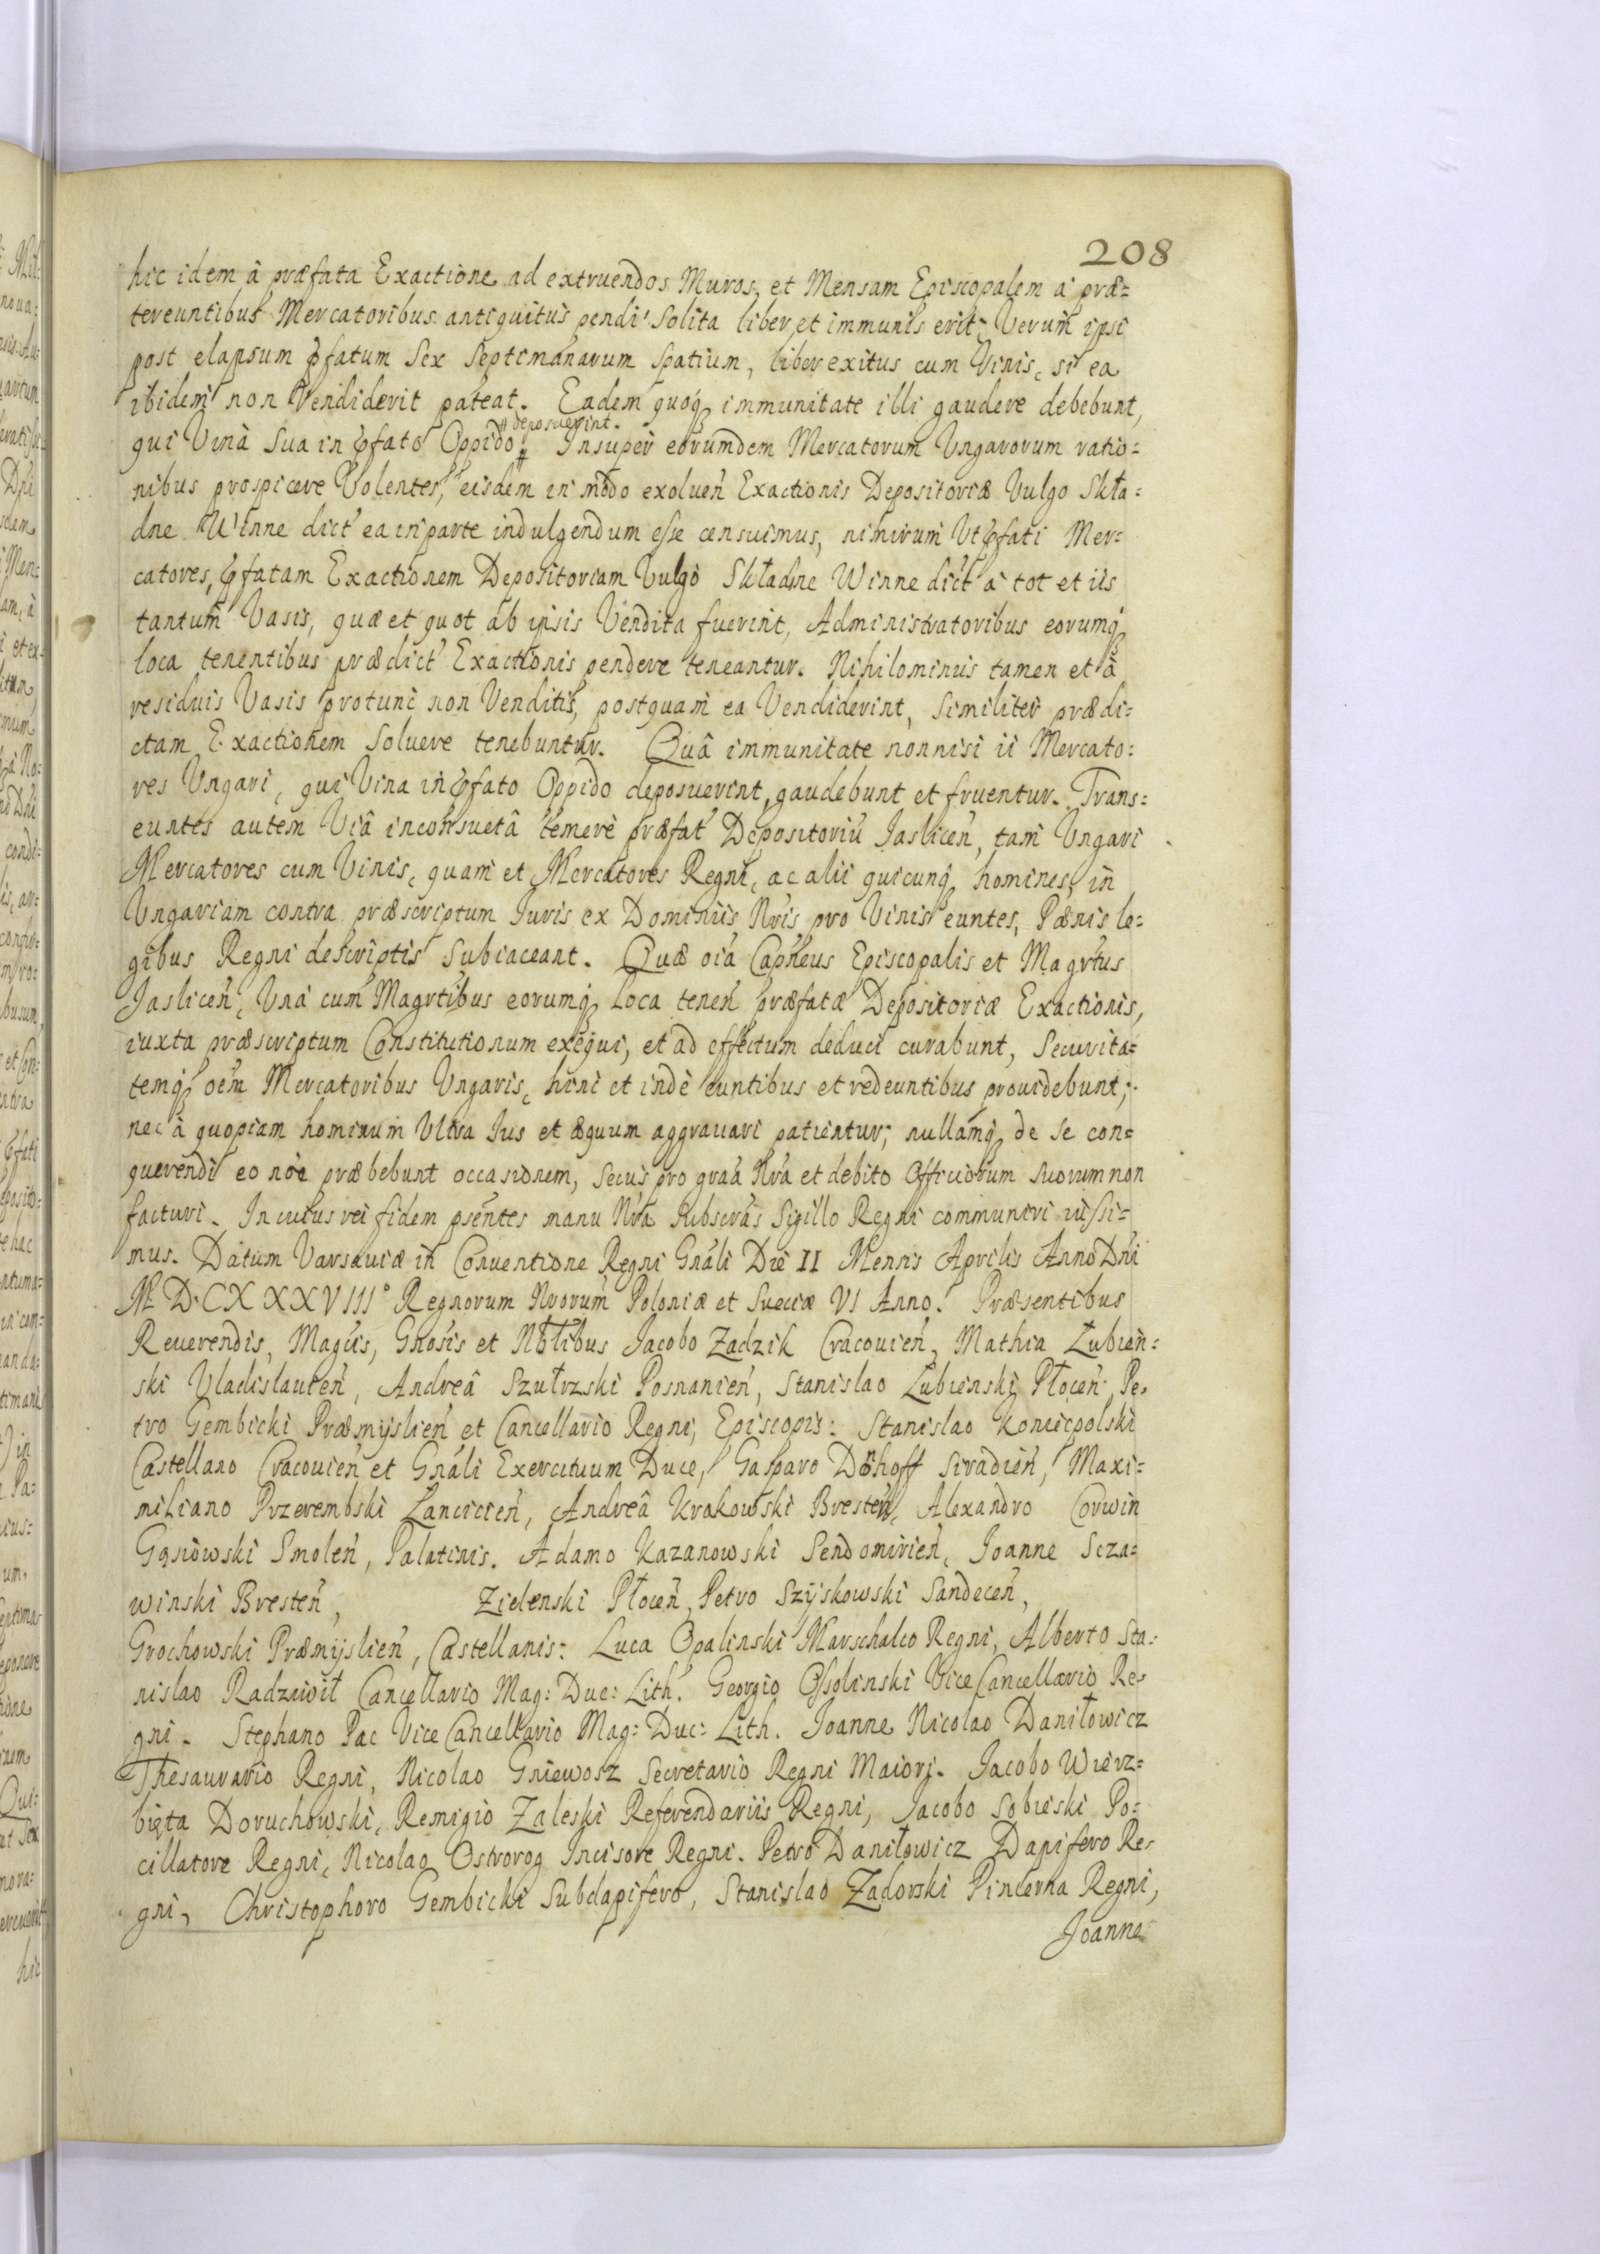 208
hic idem â præfata Exactione ad extruendos Muros, et Mensam Episcopalem a præ=
tereuntibus Mercatoribus antiquitùs pendi solita liber et immunis erit. Verum ipsi
post elapsum pfatum Sex Septimanarum Spatium, liber exitus cum Vinis, si ea
ibidem non Vendiderit pateat. Eadem quoq immunitate illi gaudere debebunt,
# deposuerint.
qui Vina Sua in pfato Oppido # Insuper eorumdem Mercatorum Ungarorum ratio=
nibus prospicere Volentes, eisdem in modo exoluen Exactionis Depositoriæ Vulgo Skła=
dne Winne dict ea in parte indulgendum esse censuimus, nimirum Vt pfati Mer=
catores, pfatam Exactionem Depositoriam Vulgò Składne Winne dict a tot et iis
tantum Vasis, quæ et quot ab ipsis Vendita fuerint, Administratoribus eorumq
loca tenentibus prædict Exactionis pendere teneantur. Nihilominus tamen et à
residuis Vasis protunc non Venditis, postquam ea Vendiderint, Similiter prædi=
ctam Exactionem Soluere tenebuntur. Quâ immunitate nonnisi ii Mercato=
res Ungari, qui Vina in pfato Oppido deposuerint, gaudebunt et fruentur. Trans=
euntes autem Viâ inconsuetâ temerè præfat Depositoriu Jaslicen, tam Ungari
Mercatores cum Vinis, quam et Mercatores Regni, ac alii quicunq homines, in
Ungariam contra præscriptum Juris ex Dominiis Nris pro Vinis euntes, Pænis le=
gibus Regni descriptis Subiaceant. Quæ oia Capneus Episcopalis et Magrtus
Jaslicen, Unà cum Magrtibus eorumq loca tenen præfatæ Depositoriæ Exactionis,
iuxta præscriptum Constitutionum exequi, et ad effectum deduci curabunt, Securita=
temq oem Mercatoribus Ungaris, hinc et indè euntibus et redeuntibus prouidebunt;
nec à quopiam hominum Ultra Ius et æquum aggrauari patientur; nullamq de Se con=
querendi eo noie præbebunt occasionem, secus pro graa Nra et debito Officiorum suorum non
facturi. In cuius rei fidem psentes manu Nra Subscras Sigillo Regni communiri iussi=
mus. Datum Varsauiæ in Conuentione Regni Gnali Die II Mensis Aprilis Anno Dni
M D CXXXVIII° Regnorum Nrorum Poloniæ et Sueciæ VI Anno. Præsentibus
Reuerendis, Magcis, Gnosis et Nblibus Jacobo Zadzik Cracouien, Mathia Łubien=
ski Vladislauien, Andreâ Szułrzski Posnanien, Stanislao Łubienski Płocen, Pe=
tro Gembicki Præmyslien et Cancellario Regni, Episcopis: Stanislao Koniecpolski
Castellano Cracouien et Gnali Exercituum Duce, Gasparo Dönhoff Siradien, Maxi=
miliano Przerembski Lancicien, Andreâ Krakowski Bresten, Alexandro Corwin
Gąsiowski Smolen, Palatinis. Adamo Kazanowski Sendomirien, Joanne Scza=
winski Bresten, Zielenski Płocen, Petro Szyskowski Sandecen,
Grochowski Præmyslien, Castellanis: Luca Opalinski Marschalco Regni, Alberto Sta=
nislao Radziwił Cancellario Mag: Duc: Lith. Georgio Ossolinski Vice Cancellario Re=
gni. Stephano Pac Vice Cancellario Mag: Duc: Lith. Joanne Nicolao Daniłowicz
Thesaurario Regni, Nicolao Gniewosz Secretario Regni Maiori. Jacobo Wierz=
bięta Doruchowski, Remigio Zaleski Referendariis Regni, Jacobo Sobieski Po=
cillatore Regni, Nicolao Ostrorog Incisore Regni. Petro Daniłowicz Dapifero Re=
gni, Christophoro Gembicki Subdapifero, Stanislao Zadorski Pincerna Regni,
Joanne